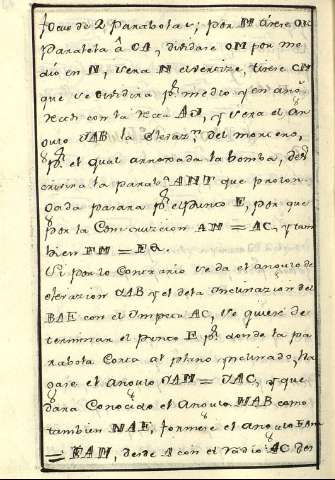 focus de 2 Parabolas; por M tirese OM
Paralela â CA, dividase OM por me
dio en N, sera N el vertize, tirese CM
que se dividira pr. medio y en ang.
Recto con la Recta AJ, y sera el an
gulo JAB la elevazn. del mortero,
pr. el qual arrojada la bomba, des
crivira la parab. ANF que prolon
gada pasara pr. el punto E, por que
por la Construccion AM = AC, y tam
bien EM = EQ.
Si por lo Contrario se da el angulo de
elevazion JAB y el de la Inclinazion del
BAE con el Impetu AC, se quiere de
terminar el punto E pr. donde la pa
rabola Corta al plano ynclinado, ha
gase el angulo JAM = JAC, y que
dara Conocido el Angulo MAB como
tambien MAE, formese el angulo EAm
= EAM, desde A con el radio AC des